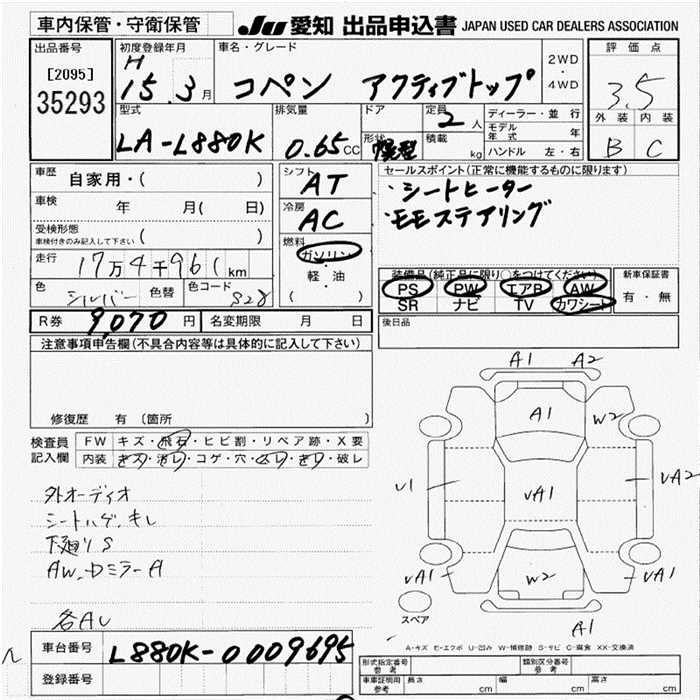 車内保管・守衛保管 JU 愛知 出品申込書 JAPAN USED CAR DEALERS ASSOCIATION
出品番号 初度登録年月 車名・グレード 2WD・4WD 評価点
[2095] H
35293 15.3月 コペン アクティブトップ 3.5
型式 排気量 ドア 定員 2人 ディーラー・並行 外装 内装
LA-L880K 0.65CC 形状 積載 kg モデル年式 年 B C
ハンドル 左・右
車歴 自家用・( ) シフト AT セールスポイント(正常に機能するものに限ります)
車検 年 月( 日) 冷房 AC ・シートヒーター
受検形態 ( ) ・モモステアリング
車検付きのみ記入して下さい
走行 17万4千961km 燃料 ガソリン・軽・油 ( )
装備品(純正品に限り○をつけてください) 新車保証書
色 シルバー 色替 色コード S28 PS PW エアB AW 有・無
SR ナビ TV カワシート
R券 9,070円 名変期限 月 日 後日品
注意事項申告欄(不具合内容等は具体的に記入して下さい)
修復歴 有 (箇所
検査員記入欄 FW キズ・飛石・ヒビ割・リペア跡・X要
内装 キズ・汚レ・コゲ・穴・ムレ・キレ・破レ
A1 A2
A1 W2
U1 VA1 VA2
VA1 W2 VA1
スペア A1
外オーディオ
シートハゲ、キレ
下廻りS
AW、Dミラー A
各AU
ル
A-キズ E-エクボ U-凹み W-補修跡 S-サビ C-腐食 XX-交換済
車台番号 L880K-0009695
登録番号
形式指定番号 参考 類別区分番号 参考
車車証明用 参考 長さ cm 幅 cm 高さ cm